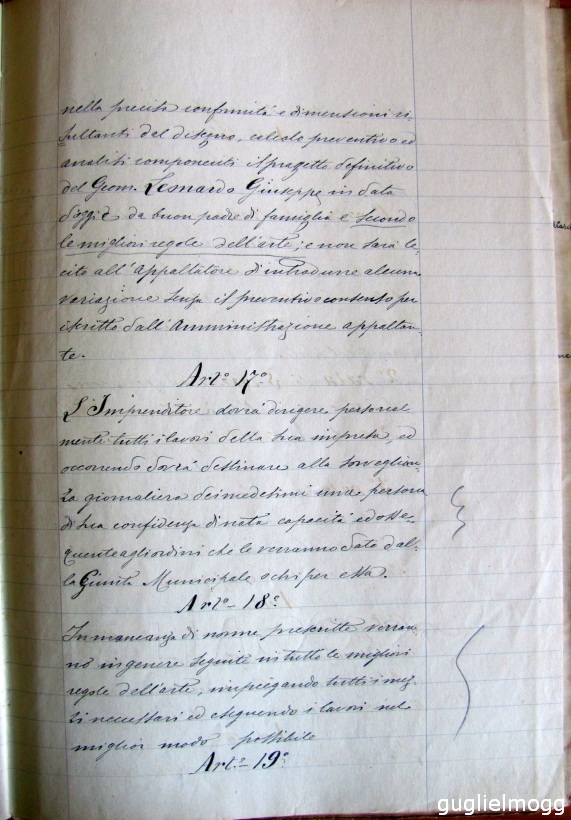 nella precisa conformità e dimensioni ri-
sultanti dal disegno, calcolo preventivo ed
analisi componenti il progetto definitivo
del Geom. Leonardo Giuseppe in data
d'oggi e da buon padre di famiglia e secondo
le migliori regole dell'arte; e non sarà le-
cito all'Appaltatore d'introdurre alcuna
variazione senza il preventivo consenso per
iscritto dall'Amministrazione appaltan-
te.
Art.o 17.o
L'Imprenditore dovrà dirigere personal
mente tutti i lavori della sua impresa, ed
occorrendo dovrà destinare alla sorveglian-
za giornaliera dei medesimi una persona
di sua confidenza di nota capacità ed osse-
quente agli ordini che le verranno dati dal-
la Giunta Municipale o chi per essa.
Art.o 18.o
In mancanza di norme prescritte verran-
no in genere seguite in tutto le migliori
regole dell'arte, impiegando tutti i mez-
zi necessari ed eseguendo i lavori nel
miglior modo possibile
Art.o 19.o
guglielmogg